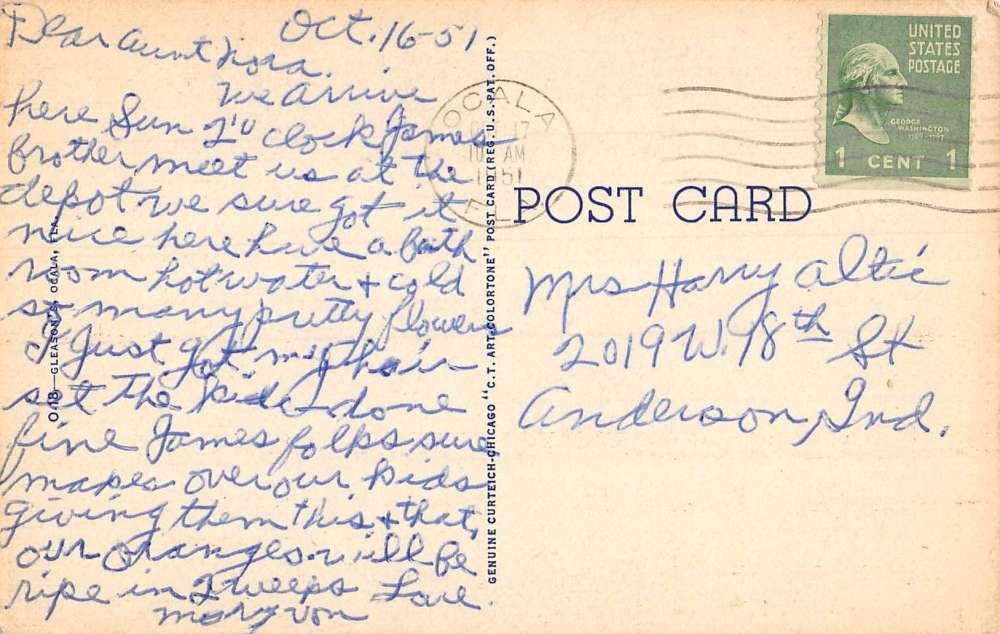 Oct. 16-51
Dear Aunt Nora.
We arrive
here Sun 2"0 clock James
brother meet us at the
depot we sure got it
nice here have a bath
room hot water + cold
so many pretty flowers
I Just got my hair
set the kids done
fine James folks sure
makes over our kids
giving them this + that,
our oranges will be
ripe in 2 weeks Love.
Maryvon
O-18—GLEASON'S, OCALA, FLA.
GENUINE CURTEICH-CHICAGO "C.T. ART-COLORTONE" POST CARD (REG. U.S. PAT. OFF.)
OCALA
17
AM
1951
POST CARD
UNITED
STATES
POSTAGE
GEORGE
WASHINGTON
1 CENT 1
Mrs Harry Altic
2019 W. 98th St
Anderson, Ind.